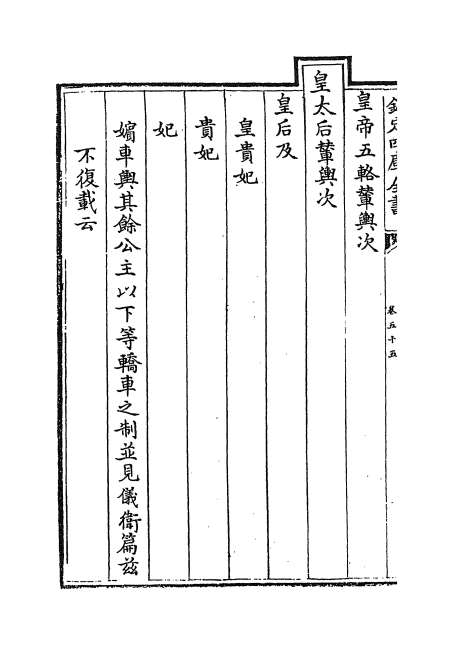 欽定四庫全書
卷五十五
皇帝五輅輦輿次
皇太后輦輿次
皇后及
皇貴妃
貴妃
妃
嬪車輿其餘公主以下等轎車之制並見儀衛篇茲
不復載云